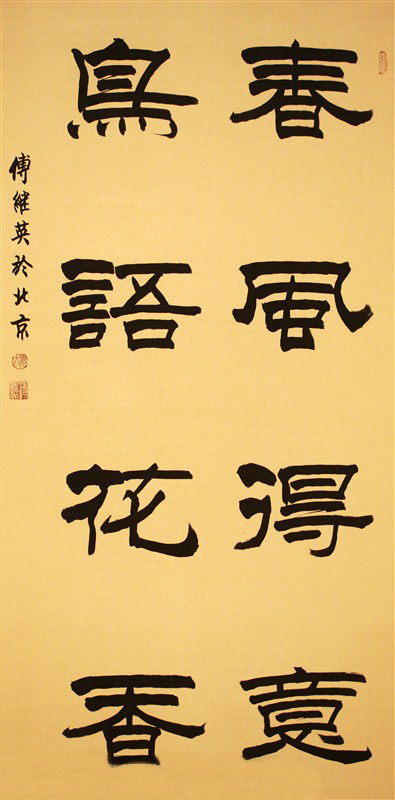 春風得意
鳥語花香
傅繼英於北京